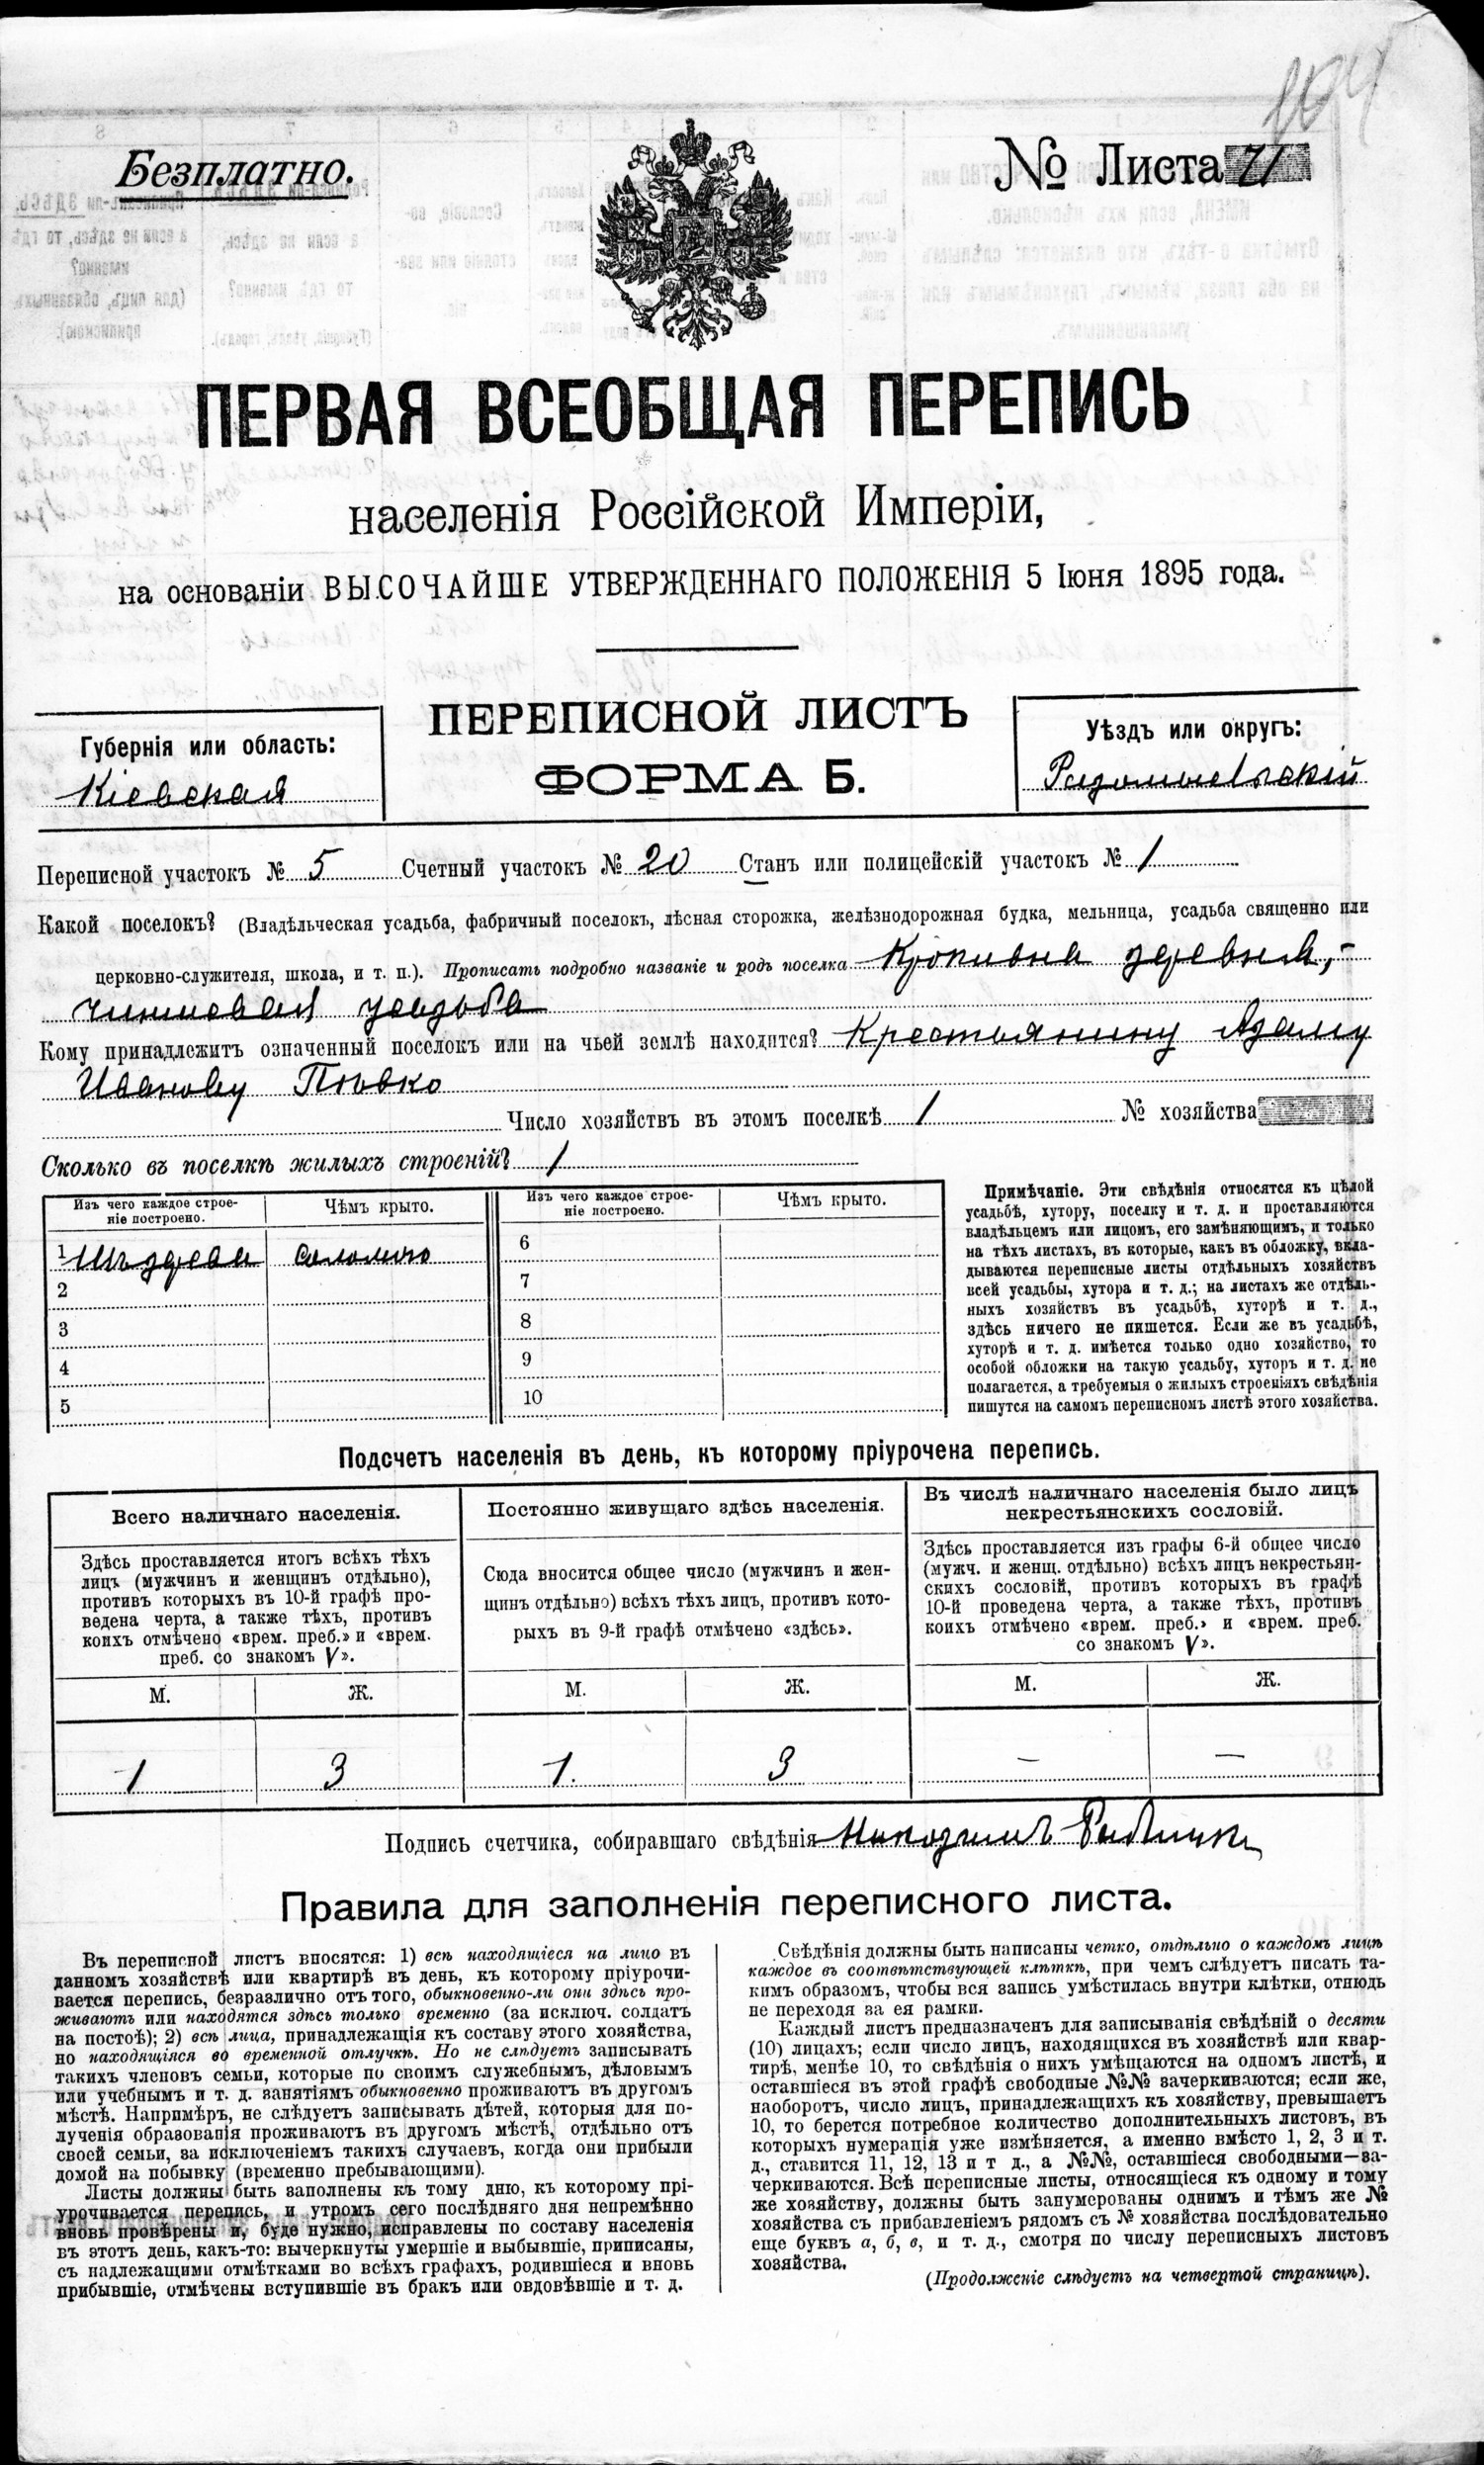 104
Безплатно.
№ Листа 71
ПЕРВАЯ ВСЕОБЩАЯ ПЕРЕПИСЬ
населенія Россійской Имперіи,
на основаніи ВЫСОЧАЙШЕ УТВЕРЖДЕННАГО ПОЛОЖЕНІЯ 5 Іюня 1895 года.
ПЕРЕПИСНОЙ ЛИСТЪ
ФОРМА Б.
Губернія или область:
Кіевская
Уѣздъ или округъ:
Радомысльскій
Переписной участокъ № 5 Счетный участокъ № 20 Станъ или полицейскій участокъ № 1
Какой поселокъ? (Владѣльческая усадьба, фабричный поселокъ, лѣсная сторожка, желѣзнодорожная будка, мельница, усадьба священно или
церковно-служителя, школа, и т. п.). Прописать подробно названіе и родъ поселка Кропивня деревня,-
чиншевая усадьба
Кому принадлежитъ означенный поселокъ или на чьей землѣ находится? Крестьянину Адаму
Иванову
Число хозяйствъ въ этомъ поселкѣ 1 № хозяйства
Сколько въ поселкѣ жилыхъ строеній? 1
Изъ чего каждое строе-
ніе построено.
Чѣмъ крыто.
Изъ чего каждое строе-
ніе построено.
Чѣмъ крыто.
1 Изъ древа соломою
2
3
4
5
6
7
8
9
10
Примѣчаніе. Эти свѣдѣнія относятся къ цѣлой
усадьбѣ, хутору, поселку и т. д. и проставляются
владѣльцемъ или лицомъ, его замѣняющимъ, и только
на тѣхъ листахъ, въ которые, какъ въ обложку, вкла-
дываются переписные листы отдѣльныхъ хозяйствъ
всей усадьбы, хутора и т. д.; на листахъ же отдѣль-
ныхъ хозяйствъ въ усадьбѣ, хуторѣ и т. д.,
здѣсь ничего не пишется. Если же въ усадьбѣ,
хуторѣ и т. д. имѣется только одно хозяйство, то
особой обложки на такую усадьбу, хуторъ и т. д. не
полагается, а требуемыя о жилыхъ строеніяхъ свѣдѣнія
пишутся на самомъ переписномъ листѣ этого хозяйства.
Подсчетъ населенія въ день, къ которому пріурочена перепись.
Всего наличнаго населенія.
Здѣсь проставляется итогъ всѣхъ тѣхъ
лицъ (мужчинъ и женщинъ отдѣльно),
противъ которыхъ въ 10-й графѣ про-
ведена черта, а также тѣхъ, противъ
коихъ отмѣчено «врем. преб.» и «врем.
преб. со знакомъ V».
Постоянно живущаго здѣсь населенія.
Сюда вносится общее число (мужчинъ и жен-
щинъ отдѣльно) всѣхъ тѣхъ лицъ, противъ кото-
рыхъ въ 9-й графѣ отмѣчено «здѣсь».
Въ числѣ наличнаго населенія было лицъ
некрестьянскихъ сословій.
Здѣсь проставляется изъ графы 6-й общее число
(мужч. и женщ. отдѣльно) всѣхъ лицъ некрестьян-
скихъ сословій, противъ которыхъ въ графѣ
10-й проведена черта, а также тѣхъ, противъ
коихъ отмѣчено «врем. преб.» и «врем. преб.
со знакомъ V».
М. Ж. М. Ж. М. Ж.
1 3 1. 3 — —
Подпись счетчика, собиравшаго свѣдѣнія Никодимъ
Правила для заполненія переписного листа.
Въ переписной листъ вносятся: 1) всѣ находящіеся на лицо въ
данномъ хозяйствѣ или квартирѣ въ день, къ которому пріурочи-
вается перепись, безразлично отъ того, обыкновенно-ли они здѣсь про-
живаютъ или находятся здѣсь только временно (за исключ. солдатъ
на постоѣ); 2) всѣ лица, принадлежащія къ составу этого хозяйства,
но находящіяся во временной отлучкѣ. Но не слѣдуетъ записывать
такихъ членовъ семьи, которые по своимъ служебнымъ, дѣловымъ
или учебнымъ и т. д. занятіямъ обыкновенно проживаютъ въ другомъ
мѣстѣ. Напримѣръ, не слѣдуетъ записывать дѣтей, которыя для по-
лученія образованія проживаютъ въ другомъ мѣстѣ, отдѣльно отъ
своей семьи, за исключеніемъ такихъ случаевъ, когда они прибыли
домой на побывку (временно пребывающими).
Листы должны быть заполнены къ тому дню, къ которому прі-
урочивается перепись, и утромъ сего послѣдняго дня непремѣнно
вновь провѣрены и, буде нужно, исправлены по составу населенія
въ этотъ день, какъ-то: вычеркнуты умершіе и выбывшіе, приписаны,
съ надлежащими отмѣтками во всѣхъ графахъ, родившіеся и вновь
прибывшіе, отмѣчены вступившіе въ бракъ или овдовѣвшіе и т. д.
Свѣдѣнія должны быть написаны четко, отдѣльно о каждомъ лицѣ
каждое въ соотвѣтствующей клѣткѣ, при чемъ слѣдуетъ писать та-
кимъ образомъ, чтобы вся запись умѣстилась внутри клѣтки, отнюдь
не переходя за ея рамки.
Каждый листъ предназначенъ для записыванія свѣдѣній о десяти
(10) лицахъ; если число лицъ, находящихся въ хозяйствѣ или квар-
тирѣ, менѣе 10, то свѣдѣнія о нихъ умѣщаются на одномъ листѣ, и
оставшіеся въ этой графѣ свободные №№ зачеркиваются; если же,
наоборотъ, число лицъ, принадлежащихъ къ хозяйству, превышаетъ
10, то берется потребное количество дополнительныхъ листовъ, въ
которыхъ нумерація уже измѣняется, а именно вмѣсто 1, 2, 3 и т.
д., ставится 11, 12, 13 и т д., а №№, оставшіеся свободными—за-
черкиваются. Всѣ переписные листы, относящіеся къ одному и тому
же хозяйству, должны быть занумерованы однимъ и тѣмъ же №
хозяйства съ прибавленіемъ рядомъ съ № хозяйства послѣдовательно
еще буквъ а, б, в, и т. д., смотря по числу переписныхъ листовъ
хозяйства.
(Продолженіе слѣдуетъ на четвертой страницѣ).